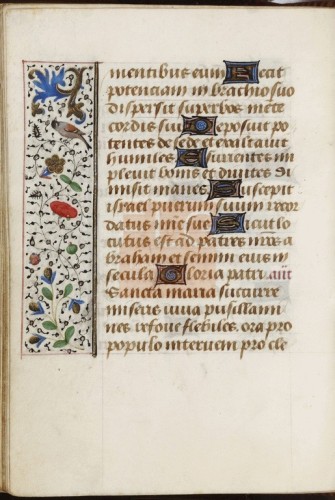 mentibus eum Fecit
potenciam in brachio suo
dispersit superbos mēte
cordis sui Deposuit po
tentes de sede et exaltauit
humiles Esurientes im
pleuit bonis et diuites di
misit inanes Suscepit
israel puerum suum recor
datus mīe sue Sicut lo
cutus est ad patres nr̄os a
braham et semini eius in
secula Gloria patri añt
Sancta maria succurre
miseris iuua pusillani
mes refoue flebiles. ora pro
populo interueni pro cle